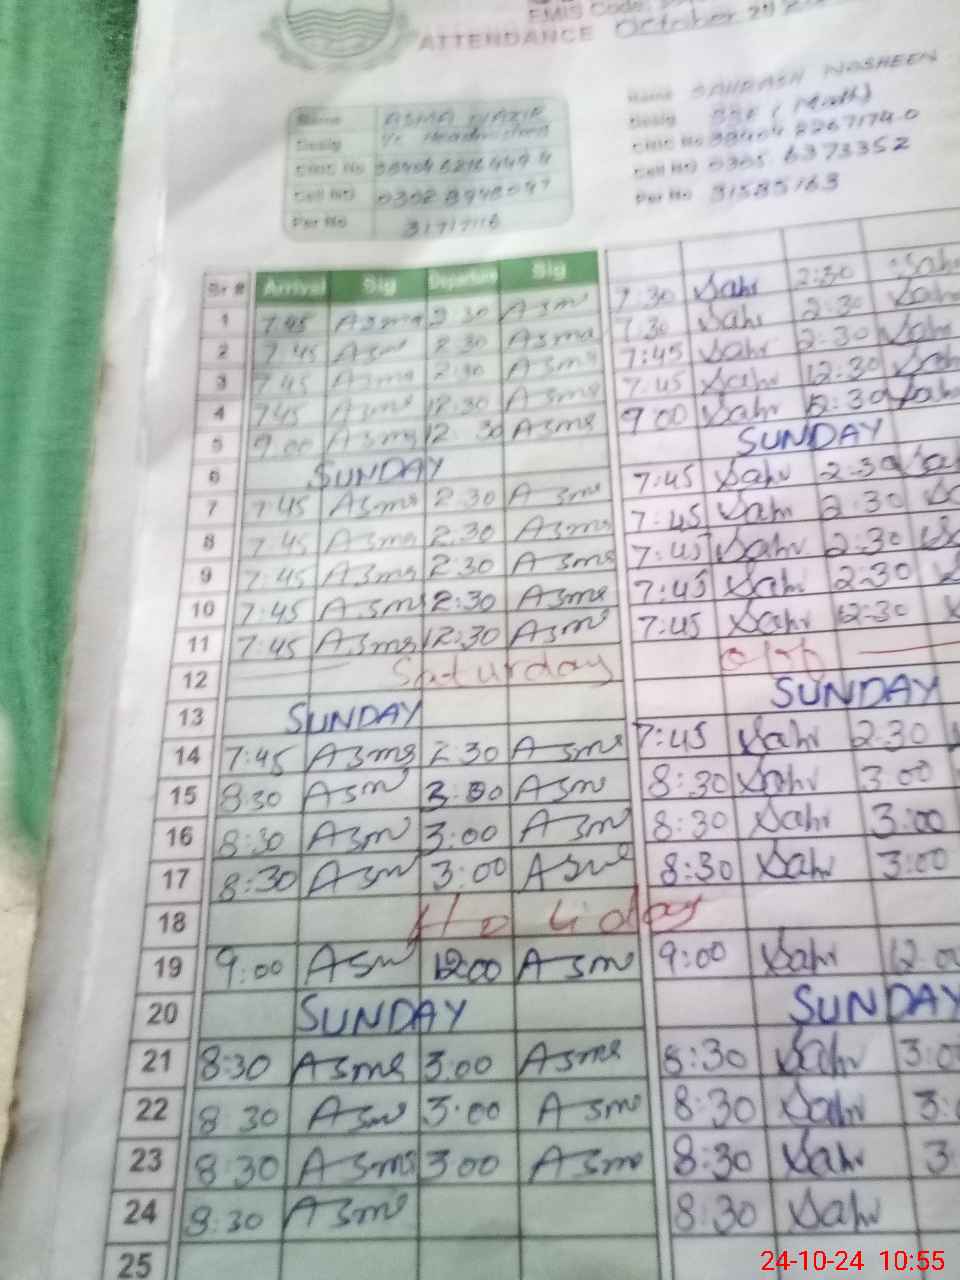 EMIS Code:
ATTENDANCE October 2024
Name ASMA NAZIR
Desig
CNIC No
Cell NO
Per No 31717116
Name NOSHEEN
Desig SSE (Math)
CNIC No
Cell NO 0305 6373352
Per No 31585763
Sr # Arrival Sig Departure Sig
7:30 Sahr 2:30 Sahr
1 7:45 Asma 2:30 Asma 7:30 Sahr 2:30 Sahr
2 7:45 Asma 2:30 Asma 7:45 Sahr 2:30 Sahr
3 7:45 Asma 2:30 Asma 7:45 Sahr 12:30 Sah
4 7:45 Asma 12:30 Asma 9:00 Sahr 12:30 Sah
5 9:00 Asma 12:30 Asma SUNDAY
6 SUNDAY 7:45 Sahr 2:30
7 7:45 Asma 2:30 Asma 7:45 Sahr 2:30
8 7:45 Asma 2:30 Asma 7:45 Sahr 2:30
9 7:45 Asma 2:30 Asma 7:45 Sahr 2:30
10 7:45 Asma 2:30 Asma 7:45 Sahr 12:30
11 7:45 Asma 12:30 Asma
12 Saturday off
13 SUNDAY SUNDAY
14 7:45 Asma 2:30 Asma 7:45 Sahr 2:30
15 8:30 Asma 3:00 Asma 8:30 Sahr 3:00
16 8:30 Asma 3:00 Asma 8:30 Sahr 3:00
17 8:30 Asma 3:00 Asma 8:30 Sahr 3:00
18 Holiday
19 9:00 Asma 12:00 Asma 9:00 Sahr 12:00
20 SUNDAY SUNDAY
21 8:30 Asma 3:00 Asma 8:30 Sahr 3:00
22 8:30 Asma 3:00 Asma 8:30 Sahr 3:
23 8:30 Asma 3:00 Asma 8:30 Sahr 3
24 8:30 Asma 8:30 Sahr
25
24-10-24 10:55